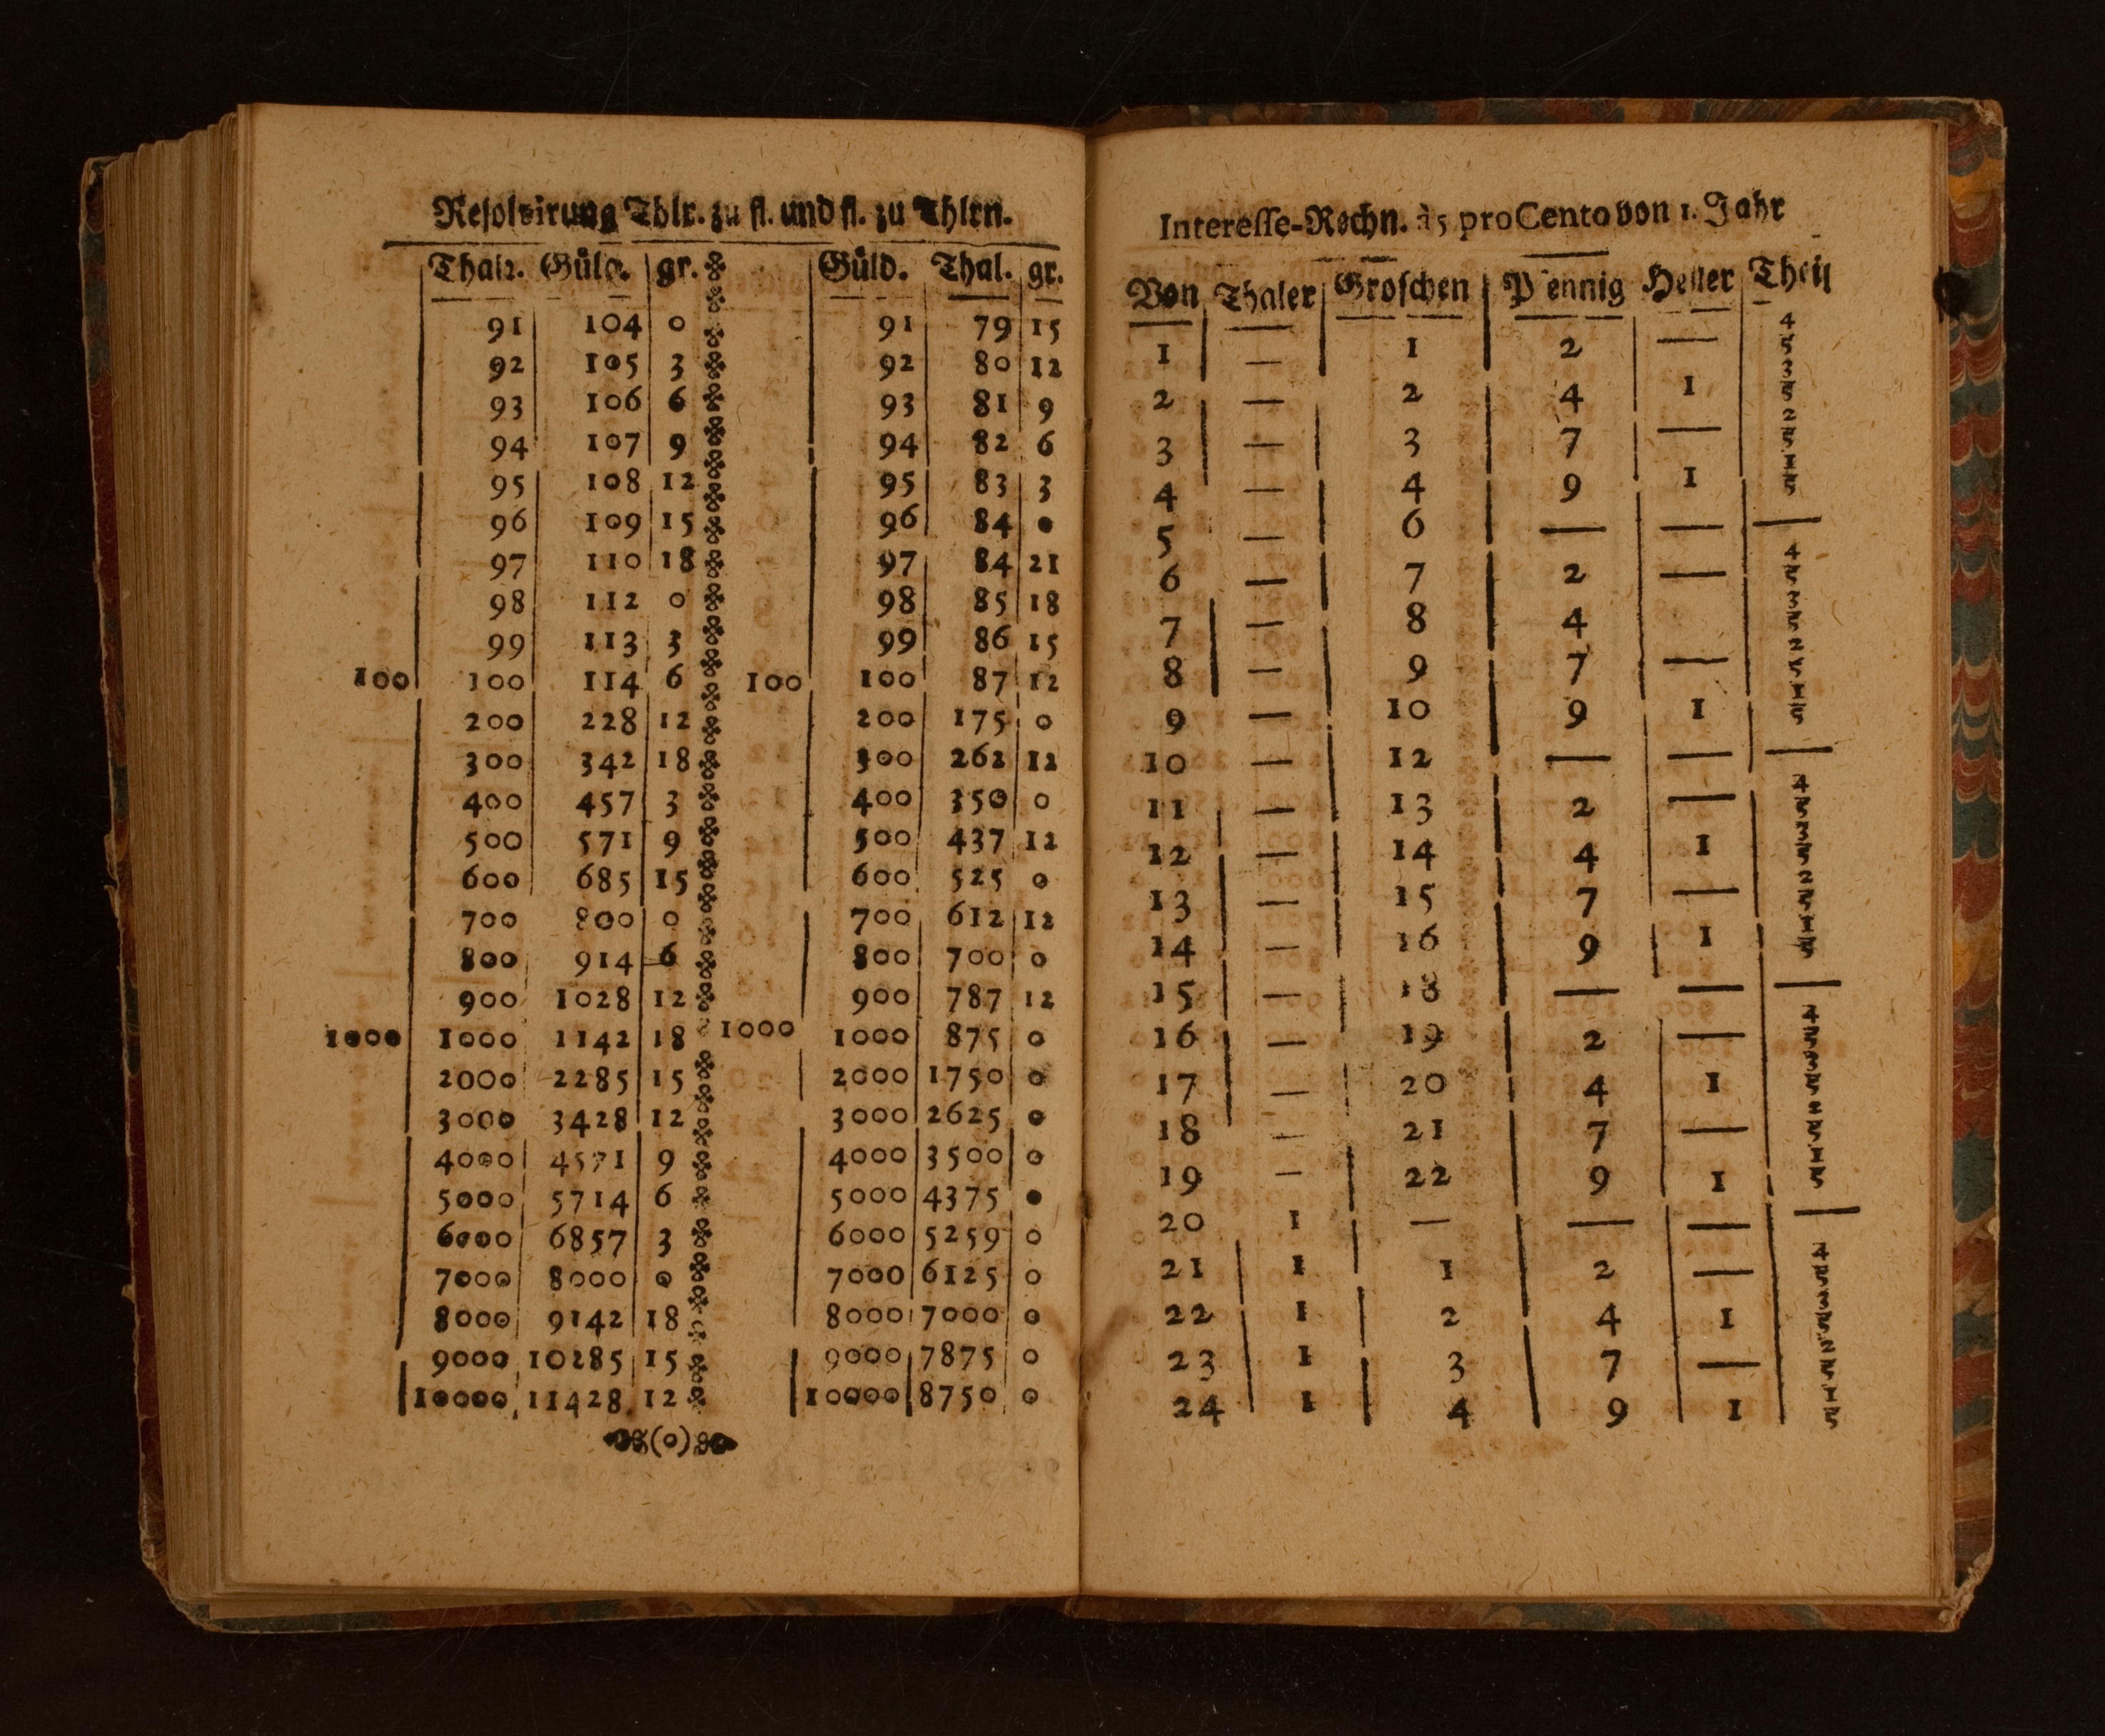 Resolvirung Thlr. zu fl. und fl. zu Thlrn.
Thalr. Güld. gr. Güld. Thal. gr.
91 104 0 91 79 15
92 105 3 92 80 12
93 106 6 93 81 9
94 107 9 94 82 6
95 108 12 95 83 3
96 109 15 96 84 0
97 110 18 97 84 21
98 112 0 98 85 18
99 113 3 99 86 15
100 100 114 6 100 100 87 12
200 228 12 200 175 0
300 342 18 300 262 12
400 457 3 400 350 0
500 571 9 500 437 12
600 685 15 600 525 0
700 800 0 700 612 12
800 914 6 800 700 0
900 1028 12 900 787 12
1000 1000 1142 18 1000 1000 875 0
2000 2285 15 2000 1750 0
3000 3428 12 3000 2625 0
4000 4571 9 4000 3500 0
5000 5714 6 5000 4375 0
6000 6857 3 6000 5259 0
7000 8000 0 7000 6125 0
8000 9142 18 8000 7000 0
9000 10285 15 9000 7875 0
10000 11428 12 10000 8750 0
(o)
Interesse-Rechn. à 5 pro Cento von 1. Jahr
Von Thaler Groschen Pfennig Heller Theil
1 — 1 2 — 4/5
2 — 2 4 1 3/5
3 — 3 7 — 2/5
4 — 4 9 1 1/5
5 — 6 — — —
6 — 7 2 — 4/5
7 — 8 4 3/5
8 — 9 7 — 2/5
9 — 10 9 1 1/5
10 — 12 — — —
11 — 13 2 — 4/5
12 — 14 4 1 3/5
13 — 15 7 — 2/5
14 — 16 9 1 1/5
15 — 18 — — —
16 — 19 2 — 4/5
17 — 20 4 1 3/5
18 — 21 7 — 2/5
19 — 22 9 1 1/5
20 1 — — — —
21 1 1 2 — 4/5
22 1 2 4 1 3/5
23 1 3 7 — 2/5
24 1 4 9 1 1/5